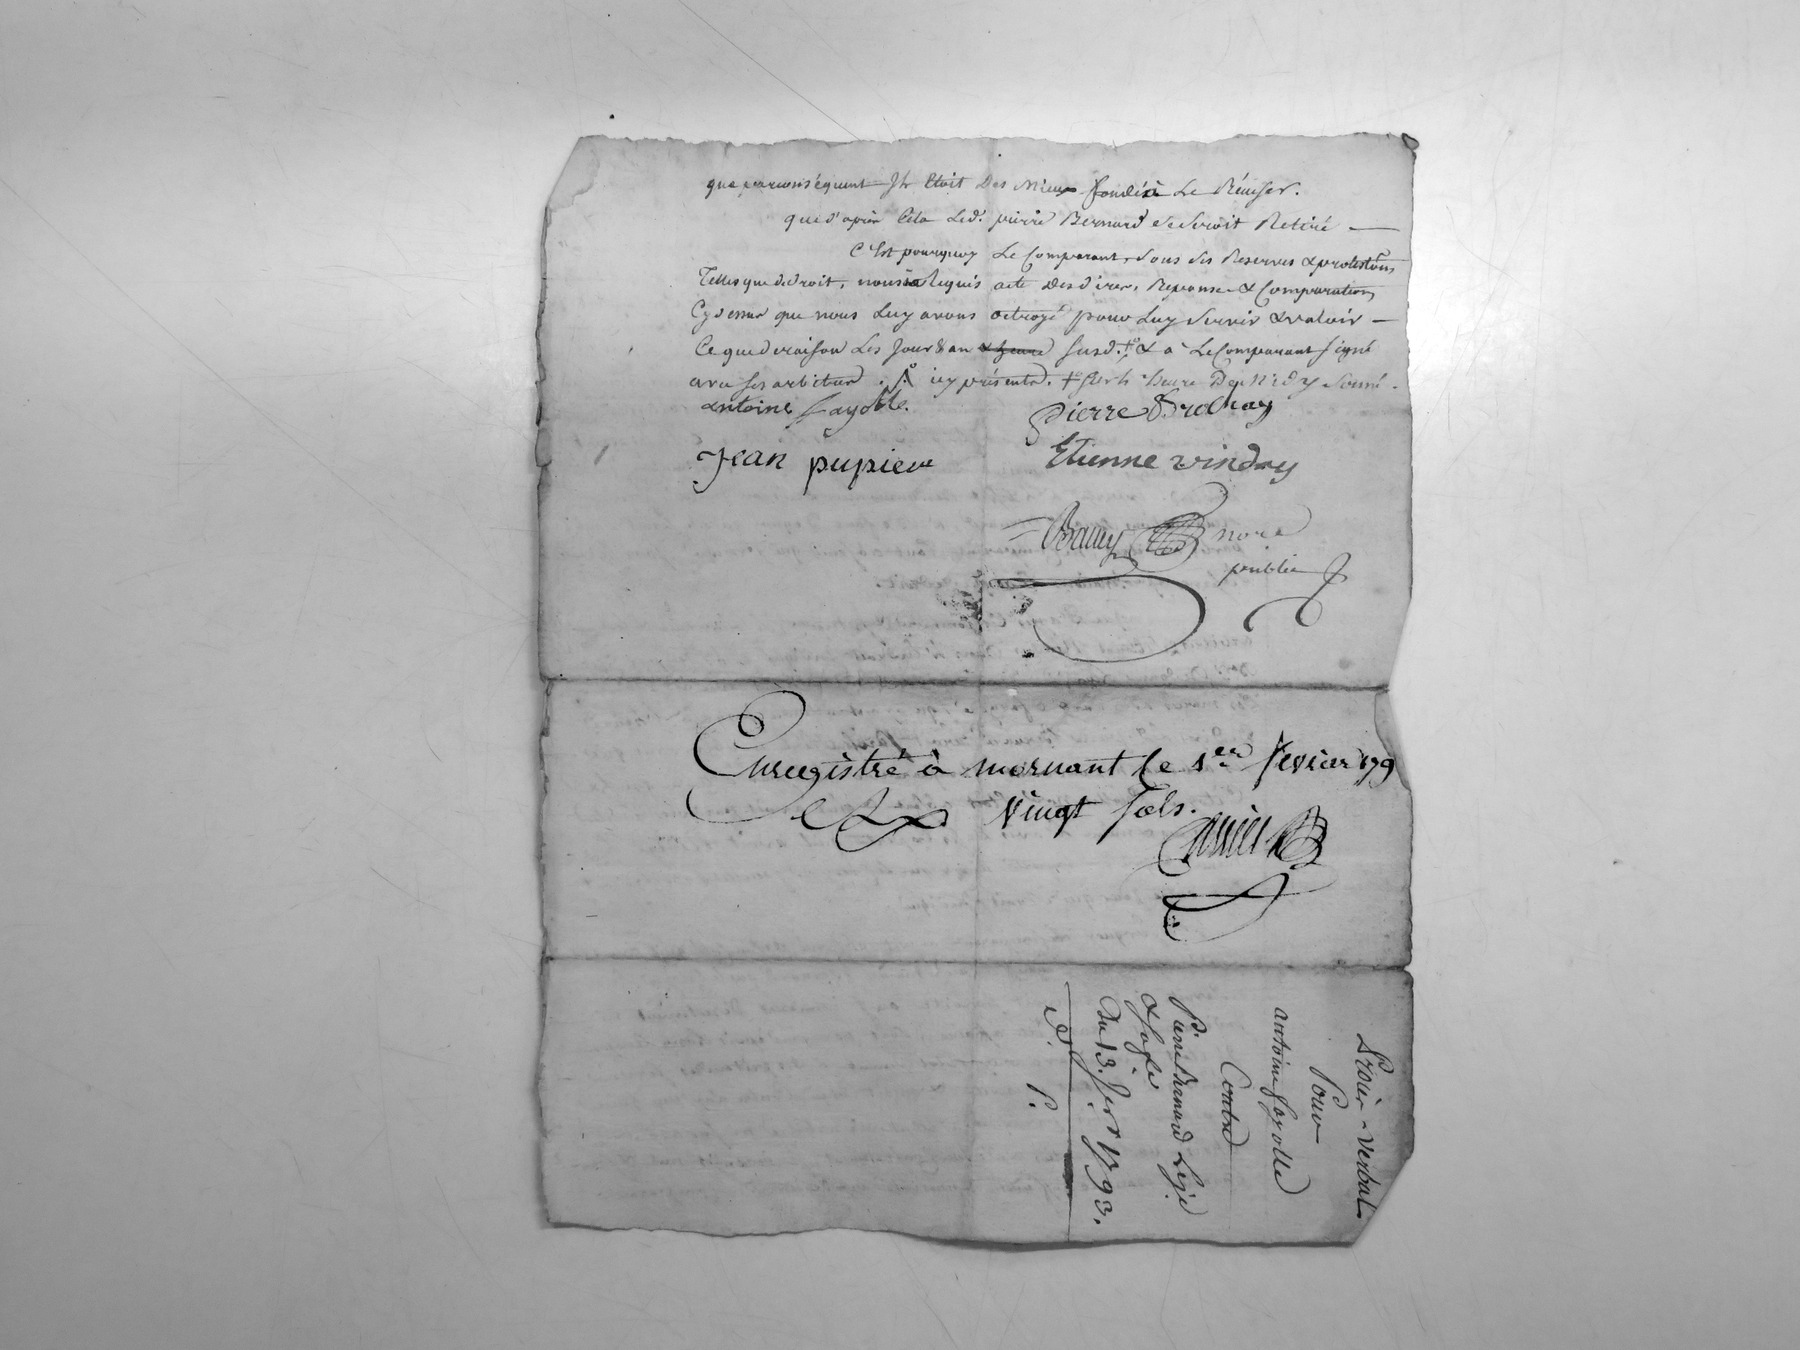 que parconséquent Il étoit Des Mieux fondé à Le Réuser.
que d'après Cela Led. pierre Bernard se seroit Retiré —
C'est pourquoy Le Comparant, sous ses Reserves & protestõns
Telles que de droit, nous a Requis acte Desd. ires, Reponse & Comparution
Cy dessus que nous Luy avons octroyé pour Luy servir & valoir —
Ce que de raison Les Jour & an & heure susd. & a Le Comparant signé
avec ses arbitres icy présents. heure De Midy sonné.
antoine fayolle. Pierre
Jean pupier Etienne vindry
nore
public
Enregistré à mornant le 1er fevrier 179
vingt sols.
Procès-Verbal
Pour
antoine fayolle
Contre
Pierre Bernard Legé
& Sage
Du 13. Jer 1793.
P.